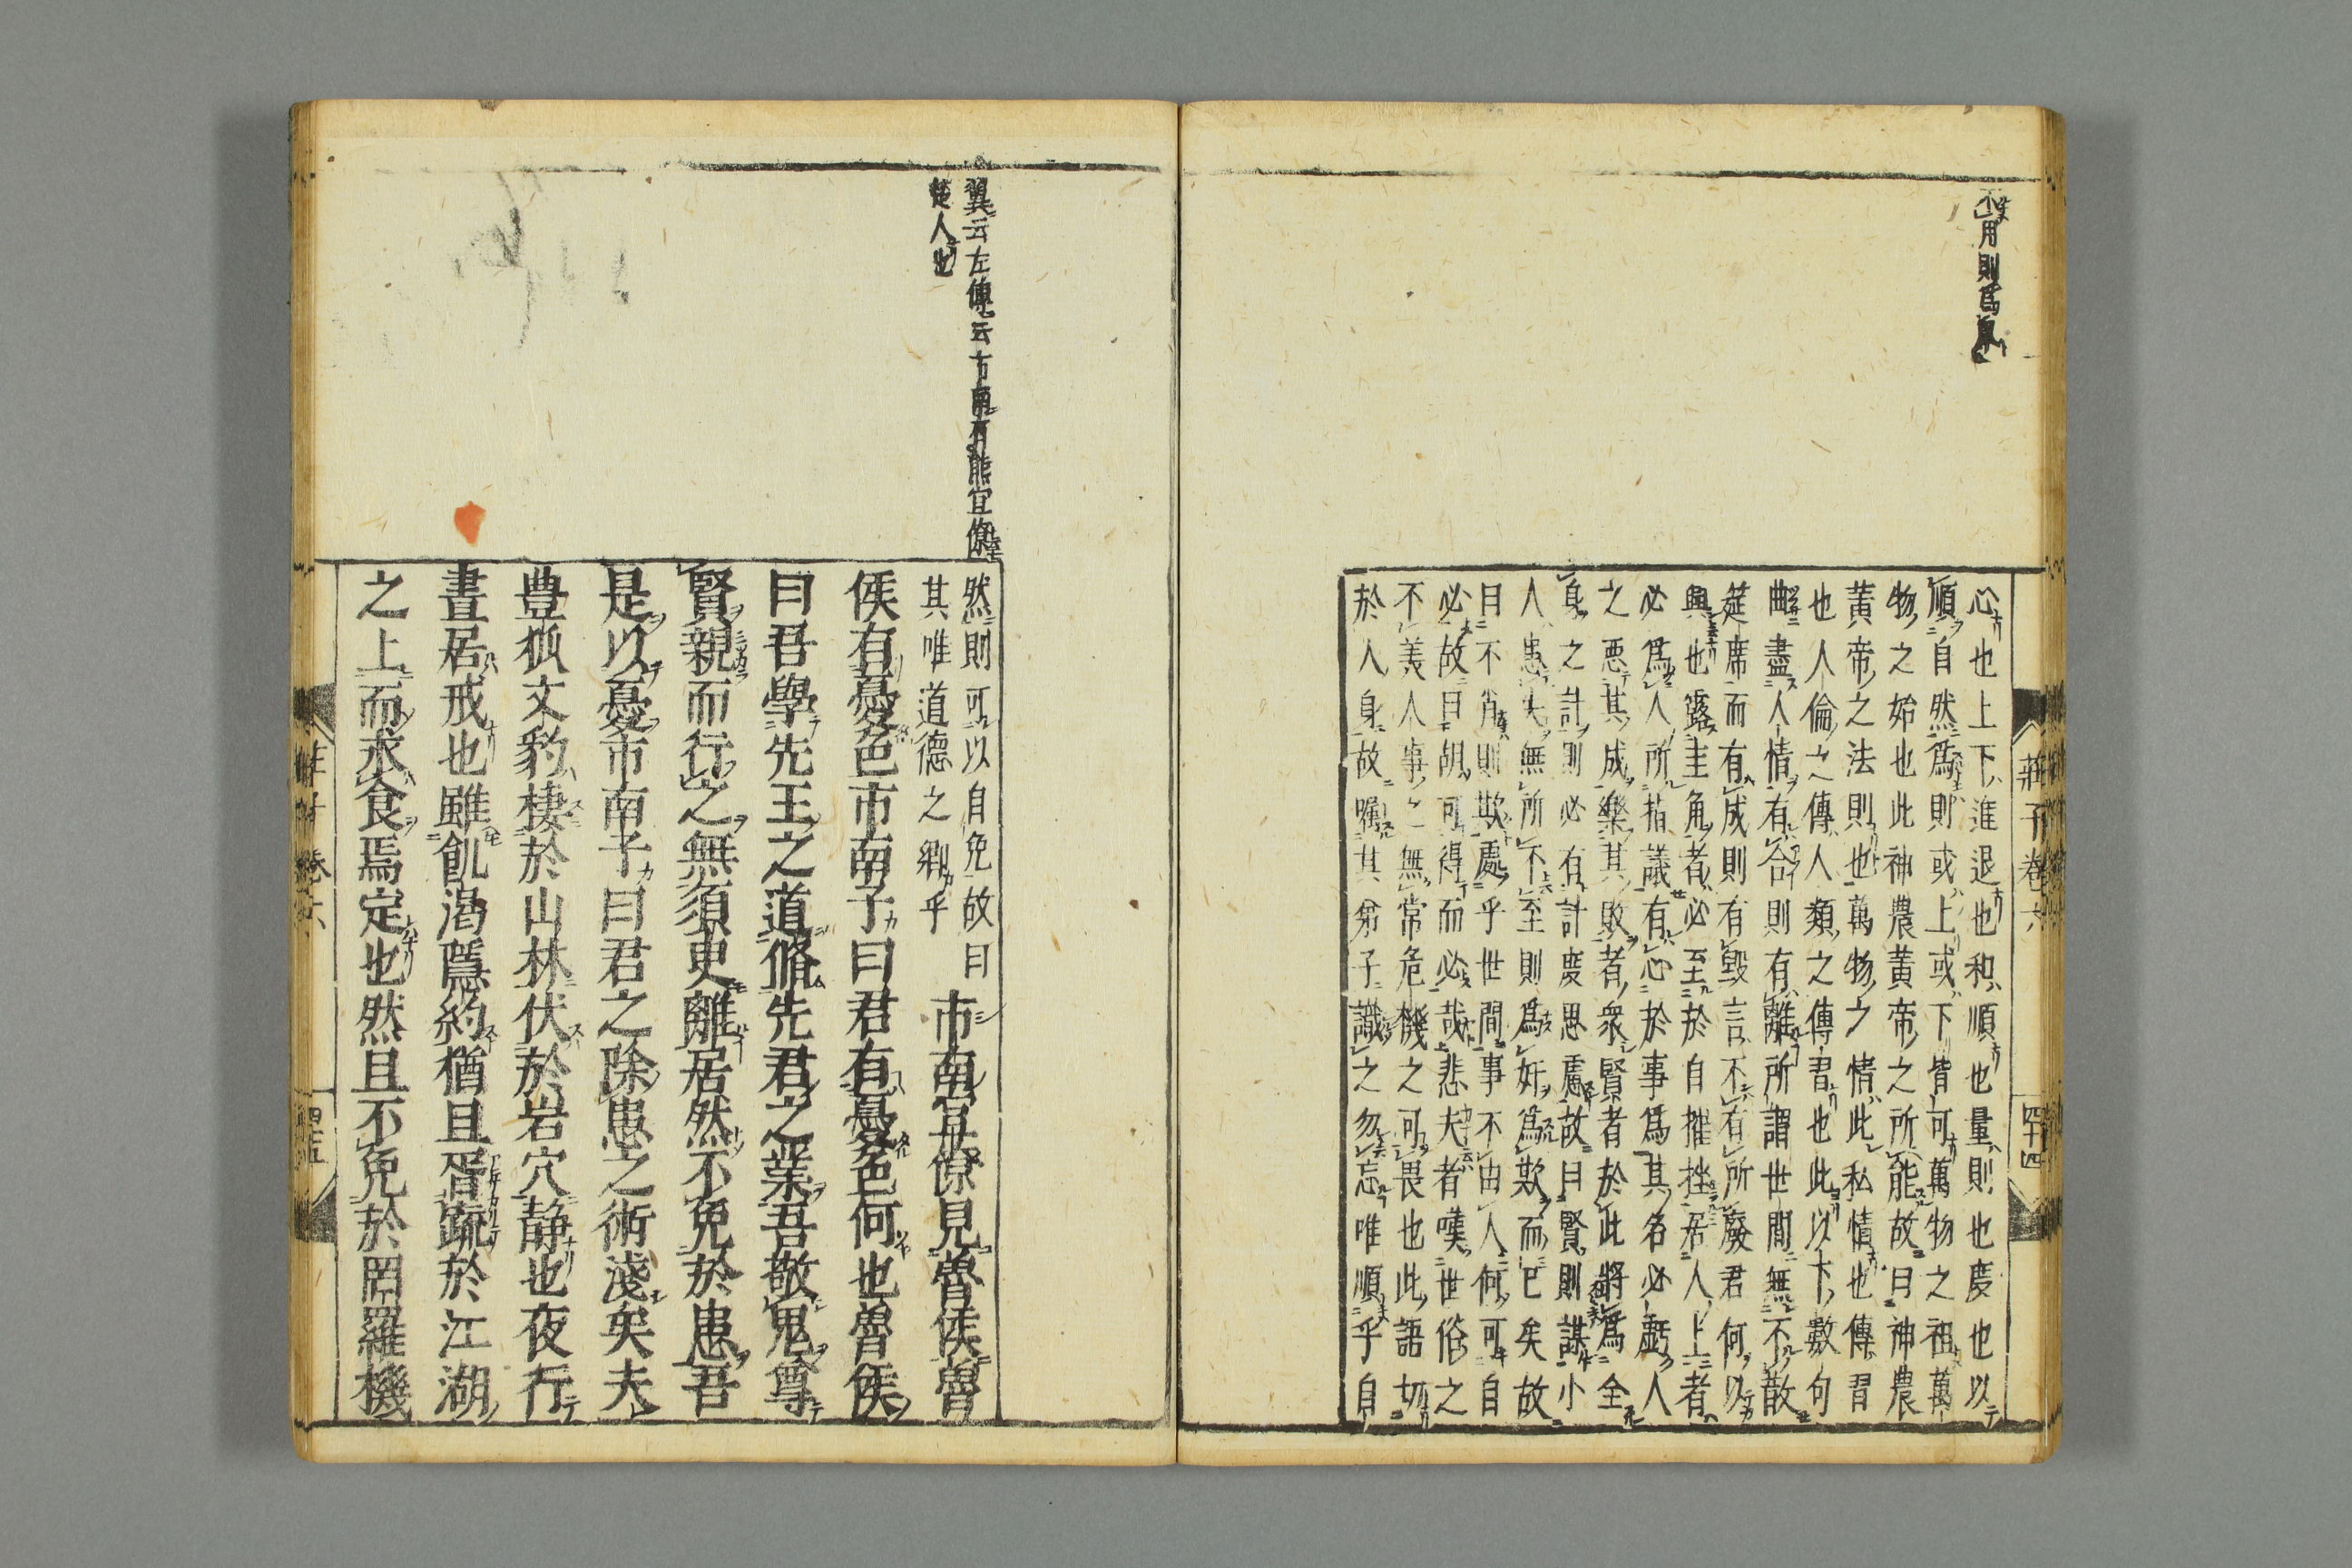 不用則爲
莊子卷六
四十四
心也上下進退也和順也量則也度也以
順自然爲則或上或下皆可萬物之祖萬
物之始也此神農黃帝之所能故曰神農
黃帝之法則也萬物之情此私情也傳習
也人倫之傳人類之傳君也此以下數句
曲盡人情有合則有離所謂世間無不散
筵席而有成則有毀言不有所廢君何以
興也露圭角者必至於自摧挫居人上者
必爲人所指議有心於事爲其名必虧人
之惡其成樂其敗者衆賢者於此將爲全
身之計則必有計度思慮故曰賢則謀小
人患失無所不至則爲奸爲欺而已矣故
曰不肖則欺處乎世間事不由人何可自
必故曰胡可得而必哉悲夫者嘆世俗之
不美人事之無常危機之可畏也此語切
於人身故囑其弟子識之勿忘唯順乎自
翼云左傳云市南有熊宜僚
楚人也
然則可以自免故曰
其唯道德之鄉乎
市南宜僚見魯侯魯
侯有憂色市南子曰君有憂色何也魯侯
曰吾學先王之道脩先君之業吾敬鬼尊
賢親而行之無須臾離居然不免於患吾
是以憂市南子曰君之除患之術淺矣夫
豊狐文豹棲於山林伏於岩穴靜也夜行
晝居戒也雖飢渴隱約猶且胥疏於江湖
之上而求食焉定也然且不免於罔羅機
卷六